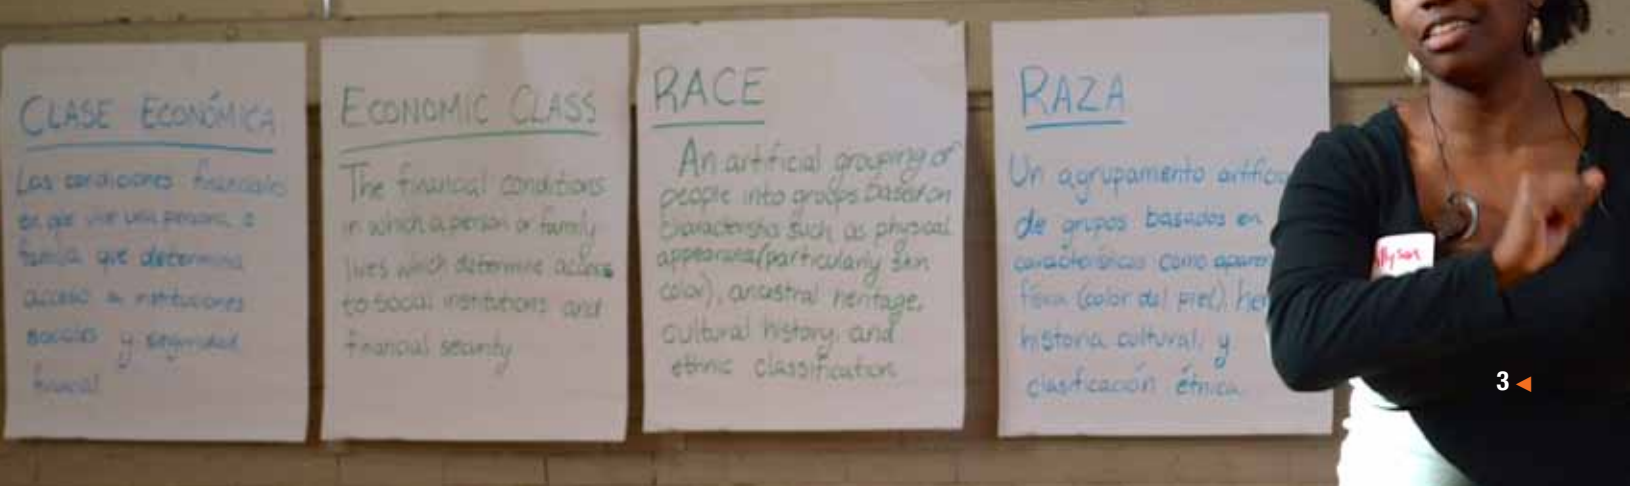 CLASE ECONÓMICA
Las condiciones financiales
en que vive una persona o
familia que determina
acceso a instituciones
sociales y seguridad
financial
ECONOMIC CLASS
The financial conditions
in which a person or family
lives which determine access
to social institutions and
financial security
RACE
An artificial grouping of
people into groups based on
characteristics such as physical
appearance (particularly skin
color), ancestral heritage,
cultural history, and
ethnic classification
RAZA
Un agrupamiento artificia
de grupos basados en
características como aparen
física (color del piel), her
historia cultural, y
clasificación étnica.
llyson
3